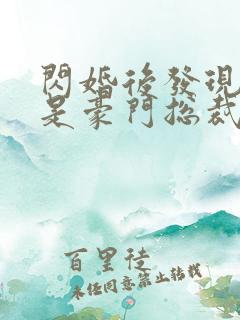 閃婚後發現
是豪門總裁
百里徒
未任同意禁止轉載